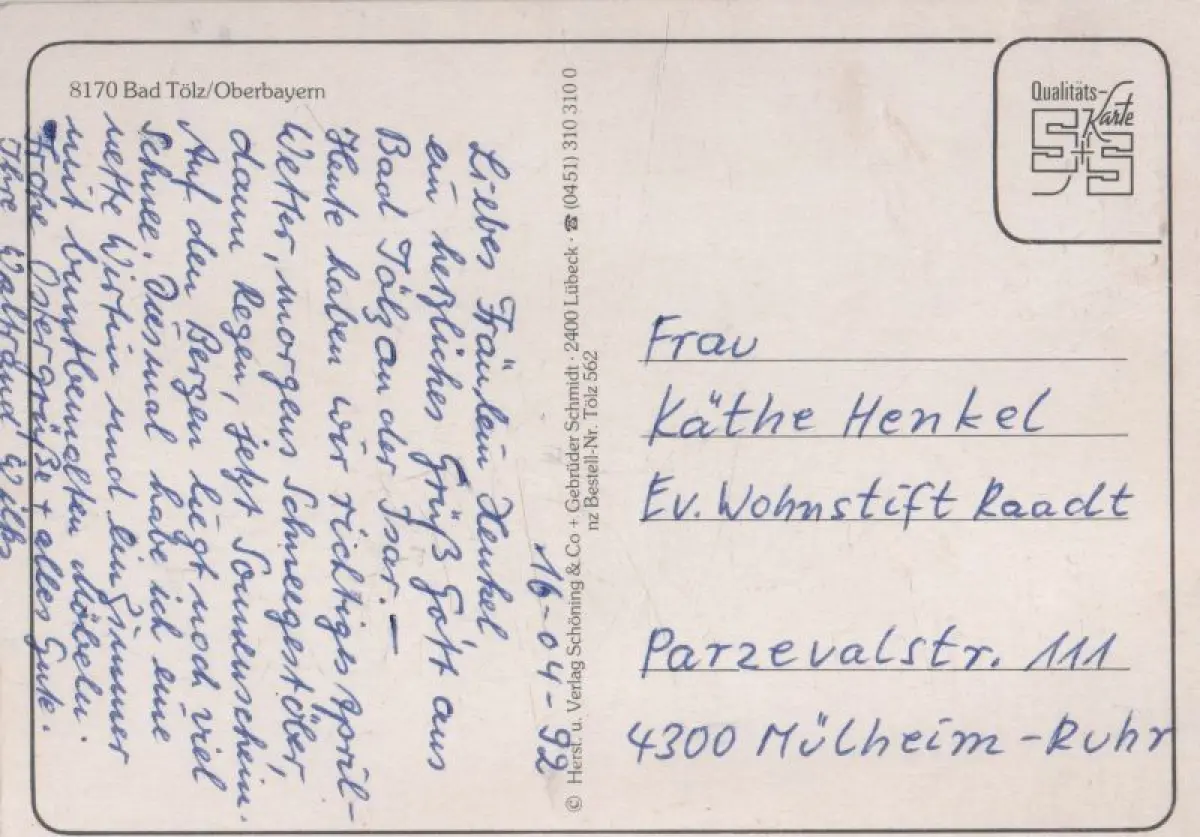 8170 Bad Tölz/Oberbayern
16-04-92
Liebes Fräulein Henkel
ein herzliches Grüß Gott aus
Bad Tölz an der Isar. –
Heute haben wir richtiges April-
Wetter, morgens Schneegestöber,
dann Regen, jetzt Sonnenschein.
Auf den Bergen liegt noch viel
Schnee. Diesmal habe ich eine
nette Wirtin und ein Zimmer
mit buntbemalten Möbeln.
Frohe Ostergrüße + alles Gute.
Ihre Waltraud
© Herst. u. Verlag Schöning & Co + Gebrüder Schmidt · 2400 Lübeck · ☎ (0451) 310 310 0
nz Bestell-Nr. Tölz 562
Qualitäts-
Karte
S+S
Frau
Käthe Henkel
Ev. Wohnstift Raadt
Parzevalstr. 111
4300 Mülheim-Ruhr